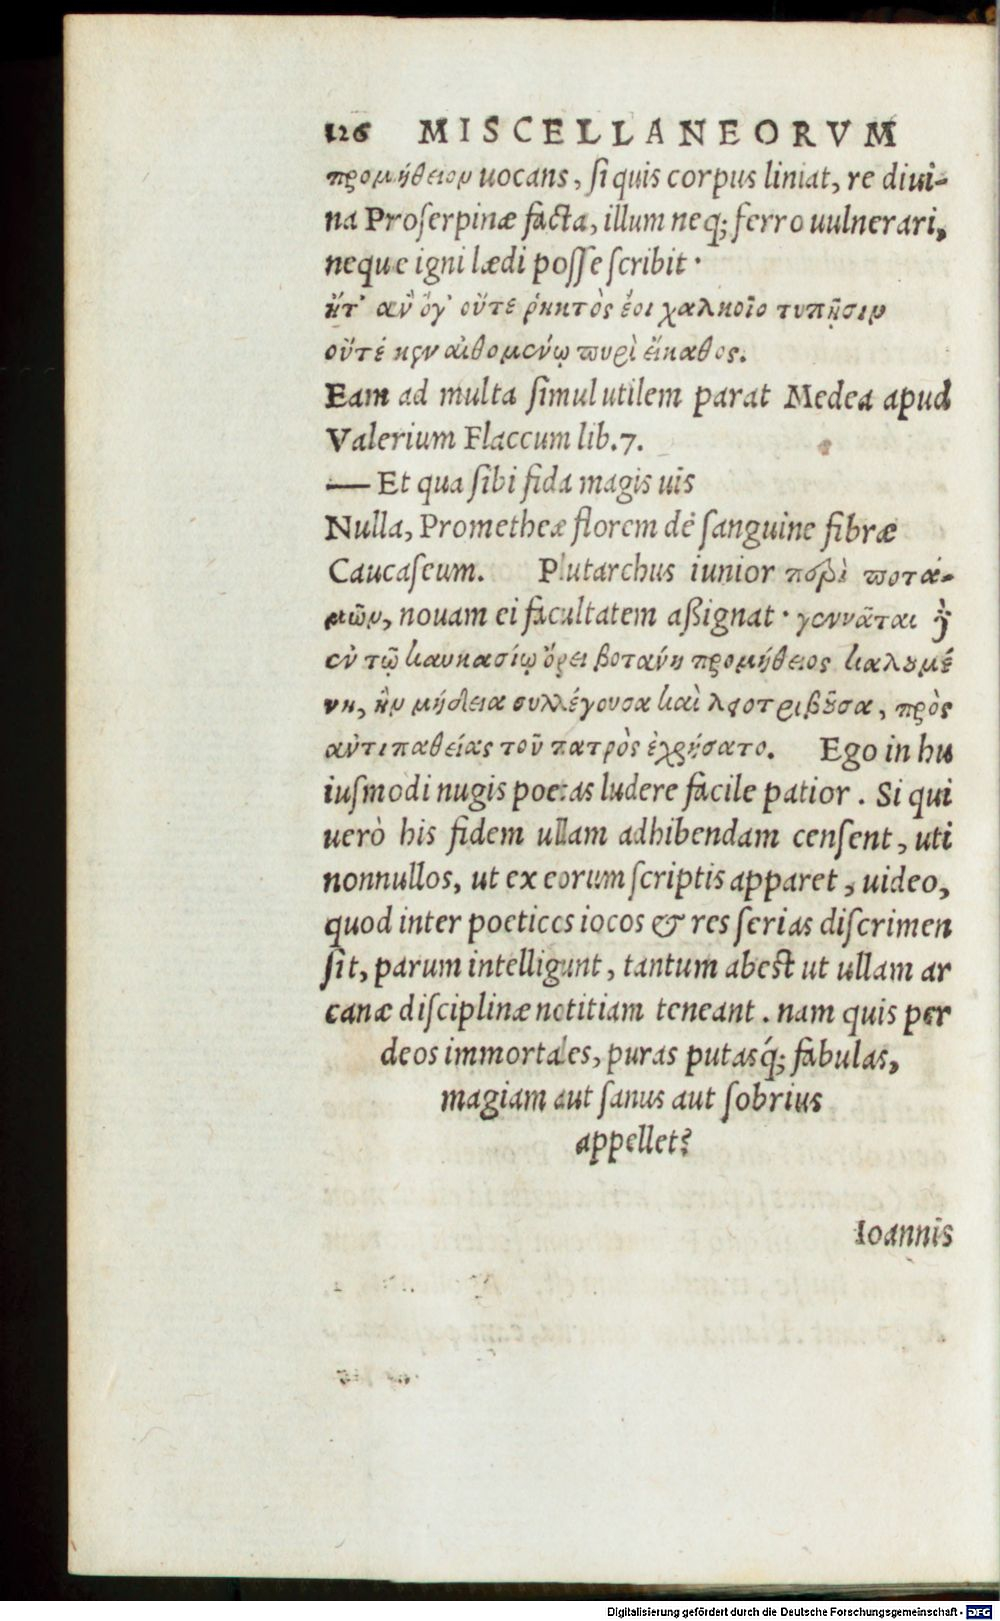 126 MISCELLANEORVM
προμήθειον uocans, ſi quis corpus liniat, re diui-
na Proſerpinæ facta, illum neq; ferro uulnerari,
neque igni lædi poſſe ſcribit·
ἤτ' ἂν ὅγ' οὔτε ῥηκτὸς ἔοι χαλκοῖο τυπῇσιν
οὔτέ κεν αἰθομένῳ πυρὶ εἴκαθοι.
Eam ad multa ſimul utilem parat Medea apud
Valerium Flaccum lib.7.
— Et qua ſibi fida magis uis
Nulla, Prometheæ florem de ſanguine fibræ
Caucaſeum. Plutarchus iunior περὶ ποτα-
μῶν, nouam ei facultatem aßignat· γεννᾶται
ἐν τῷ καυκασίῳ ὄρει βοτάνη προμήθειος καλουμέ
νη, ἣν μήδεια συλλέγουσα καὶ λειοτριβοῦσα, πρὸς
ἀντιπαθείας τοῦ πατρὸς ἐχρήσατο. Ego in hu
iuſmodi nugis poetas ludere facile patior. Si qui
uerò his fidem ullam adhibendam cenſent, uti
nonnullos, ut ex eorum ſcriptis apparet, uideo,
quod inter poetices iocos & res ſerias diſcrimen
ſit, parum intelligunt, tantum abest ut ullam ar
canæ diſciplinæ notitiam teneant. nam quis per
deos immortales, puras putasq́; fabulas,
magiam aut ſanus aut ſobrius
appellet?
Ioannis
Digitalisierung gefördert durch die Deutsche Forschungsgemeinschaft - DFG